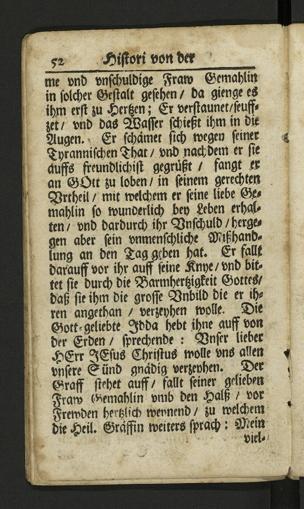 52 Histori von der
me vnd vnschuldige Fraw Gemahlin
in solcher Gestalt gesehen / da gienge es
ihm erst zu Hertzen; Er verstaunet/seuff-
zet / vnd das Wasser schießt ihm in die
Augen. Er schämet sich wegen seiner
Tyrannischen That / vnd nachdem er sie
auffs freundlichist gegrüßt / fangt er
an GOtt zu loben / in seinem gerechten
Vrtheil / mit welchem er seine liebe Ge-
mahlin so wunderlich bey Leben erhal-
ten / vnd dardurch ihr Vnschuld / herge-
gen aber sein vnmenschliche Mißhand-
lung an den Tag geben hat. Er fallt
darauff vor ihr auff seine Knye / vnd bit-
tet sie durch die Barmhertzigkeit Gottes/
daß sie ihm die grosse Vnbild die er ih-
ren angethan / verzeyhen wolle. Die
Gott-geliebte Idda hebt ihne auff von
der Erden / sprechende : Vnser lieber
HErr JEsus Christus wolle vns allen
vnsere Sünd gnädig verzeyhen. Der
Graff stehet auff / fallt seiner gelieben
Fraw Gemahlin vmb den Halß / vor
Frewden hertzlich weynend / zu welchem
die Heil. Gräffin weiters sprach : Mein
viel-